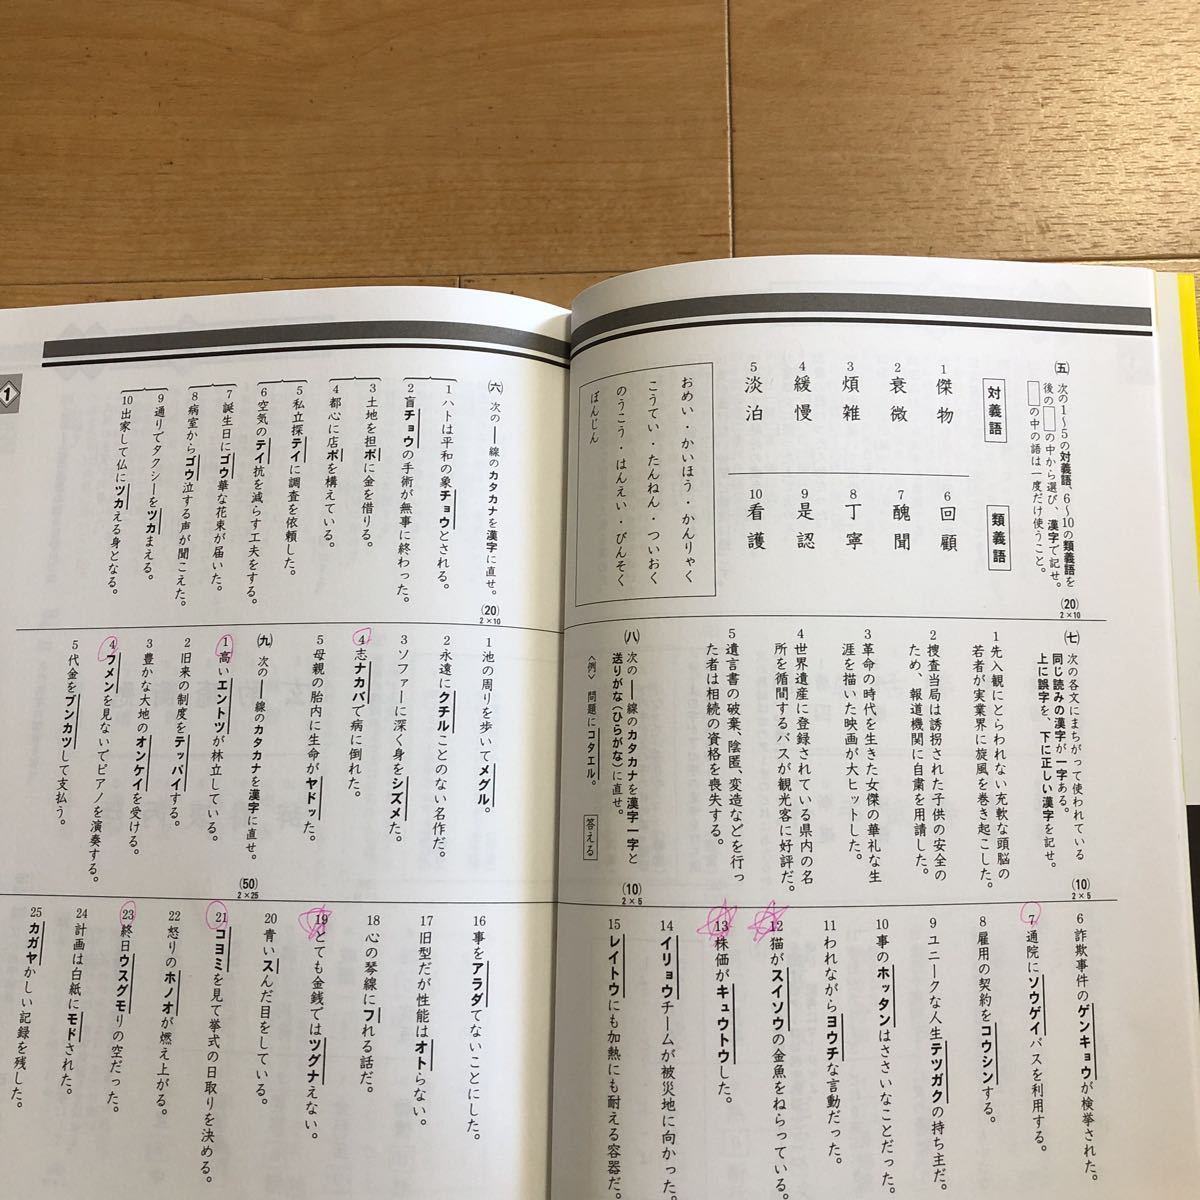 ㈤ 次の1〜5の対義語、6〜10の類義語を
後の□の中から選び、漢字で記せ。
□の中の語は一度だけ使うこと。
(20)
2×10
対義語
1 傑物
2 衰微
3 煩雑
4 緩慢
5 淡泊
類義語
6 回顧
7 醜聞
8 丁寧
9 是認
10 看護
おめい・かいほう・かんりゃく
こうてい・たんねん・ついおく
のうこう・はんえい・びんそく
ぼんじん
㈥ 次の―線のカタカナを漢字に直せ。
(20)
2×10
1 ハトは平和の象チョウとされる。
2 盲チョウの手術が無事に終わった。
3 土地を担ポに金を借りる。
4 都心に店ポを構えている。
5 私立探テイに調査を依頼した。
6 空気のテイ抗を減らす工夫をする。
7 誕生日にゴウ華な花束が届いた。
8 病室からゴウ泣する声が聞こえた。
9 通りでタクシーをツカまえる。
10 出家して仏にツカえる身となる。
1
㈦ 次の各文にまちがって使われている
同じ読みの漢字が一字ある。
上に誤字を、下に正しい漢字を記せ。
(10)
2×5
1 先入観にとらわれない充軟な頭脳の
若者が実業界に旋風を巻き起こした。
2 捜査当局は誘拐された子供の安全の
ため、報道機関に自粛を用請した。
3 革命の時代を生きた女傑の華礼な生
涯を描いた映画が大ヒットした。
4 世界遺産に登録されている県内の名
所を循間するバスが観光客に好評だ。
5 遺言書の破棄、陰匿、変造などを行っ
た者は相続の資格を喪失する。
㈧ 次の―線のカタカナを漢字一字と
送りがな(ひらがな)に直せ。
(10)
2×5
〈例〉 問題にコタエル。 答える
1 池の周りを歩いてメグル。
2 永遠にクチルことのない名作だ。
3 ソファーに深く身をシズメた。
4 志ナカバで病に倒れた。
5 母親の胎内に生命がヤドッた。
㈨ 次の―線のカタカナを漢字に直せ。
(50)
2×25
1 高いエントツが林立している。
2 旧来の制度をテッパイする。
3 豊かな大地のオンケイを受ける。
4 フメンを見ないでピアノを演奏する。
5 代金をブンカツして支払う。
6 詐欺事件のゲンキョウが検挙された。
7 通院にソウゲイバスを利用する。
8 雇用の契約をコウシンする。
9 ユニークな人生テツガクの持ち主だ。
10 事のホッタンはささいなことだった。
11 われながらヨウチな言動だった。
12 猫がスイソウの金魚をねらっている。
13 株価がキュウトウした。
14 イリョウチームが被災地に向かった。
15 レイトウにも加熱にも耐える容器だ。
16 事をアラダてないことにした。
17 旧型だが性能はオトらない。
18 心の琴線にフれる話だ。
19 とても金銭ではツグナえない。
20 青いスんだ目をしている。
21 コヨミを見て挙式の日取りを決める。
22 怒りのホノオが燃え上がる。
23 終日ウスグモりの空だった。
24 計画は白紙にモドされた。
25 カガヤかしい記録を残した。